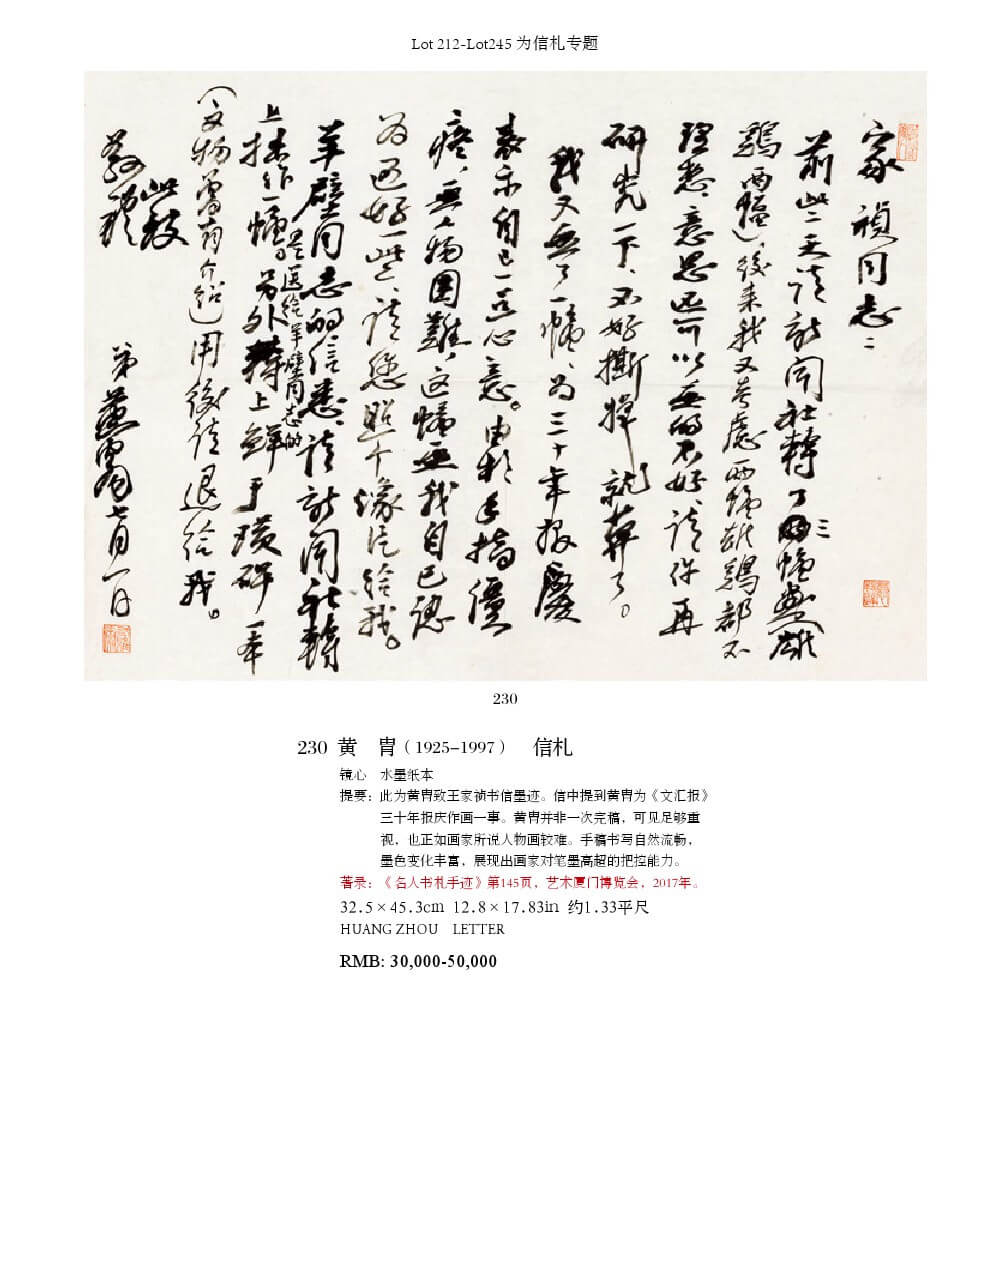 Lot 212-Lot245 为信札专题
家祯同志：
前此二天请新闻社转了三幅画（雄
鷄两幅），後来我又考慮两幅雄鷄都不
理想、意思还可以画的不好、请你再
研究一下、不好撕掉就算了。
我又画了一幅、为三十年报慶
表示自己一点心意。由於手指僵
痛、画人物困難，这幅画我自己認
为还好一些、请您照个像片给我。
羊壁同志的信悉、请新闻社轉
上拙作一幅。是送给羊壁同志的
另外轉上鲜于璜碑一本
（文物曾有介绍）用後请退给我。
此致
敬礼
弟黄胄七月一日
230
230 黄　胄（1925–1997）　信札
镜心　水墨纸本
提要：此为黄胄致王家祯书信墨迹。信中提到黄胄为《文汇报》
三十年报庆作画一事。黄胄并非一次完稿，可见足够重
视，也正如画家所说人物画较难。手稿书写自然流畅，
墨色变化丰富，展现出画家对笔墨高超的把控能力。
著录：《名人书札手迹》第145页，艺术厦门博览会，2017年。
32.5×45.3cm 12.8×17.83in 约1.33平尺
HUANG ZHOU　LETTER
RMB: 30,000-50,000